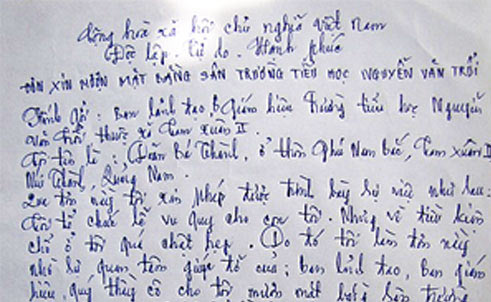 Cộng hòa xã hội chủ nghĩa Việt Nam
Độc lập. Tự do. Hạnh phúc
ĐƠN XIN MƯỢN MẶT BẰNG SÂN TRƯỜNG TIỂU HỌC NGUYỄN VĂN TRỖI
Kính gởi: Ban lãnh đạo Giám hiệu Trường tiểu học Nguyễn
văn Trỗi thuộc xã Tam xuân II.
Tôi tên là: Trần Bá Thành, ở thôn Phú Nam Bắc, Tam xuân II
Núi Thành, Quảng Nam.
Qua đơn này tôi xin phép được trình bày sự việc như sau:
Tôi tổ chức lễ vu quy cho con tôi. Nhưng về điều kiện
chỗ ở tôi quá chật hẹp. Do đó tôi làm đơn này
nhờ sự quan tâm giúp đỡ của: ban lãnh đạo, Ban giám
hiệu, quý thầy cô cho tôi mượn mặt bằng sân trường